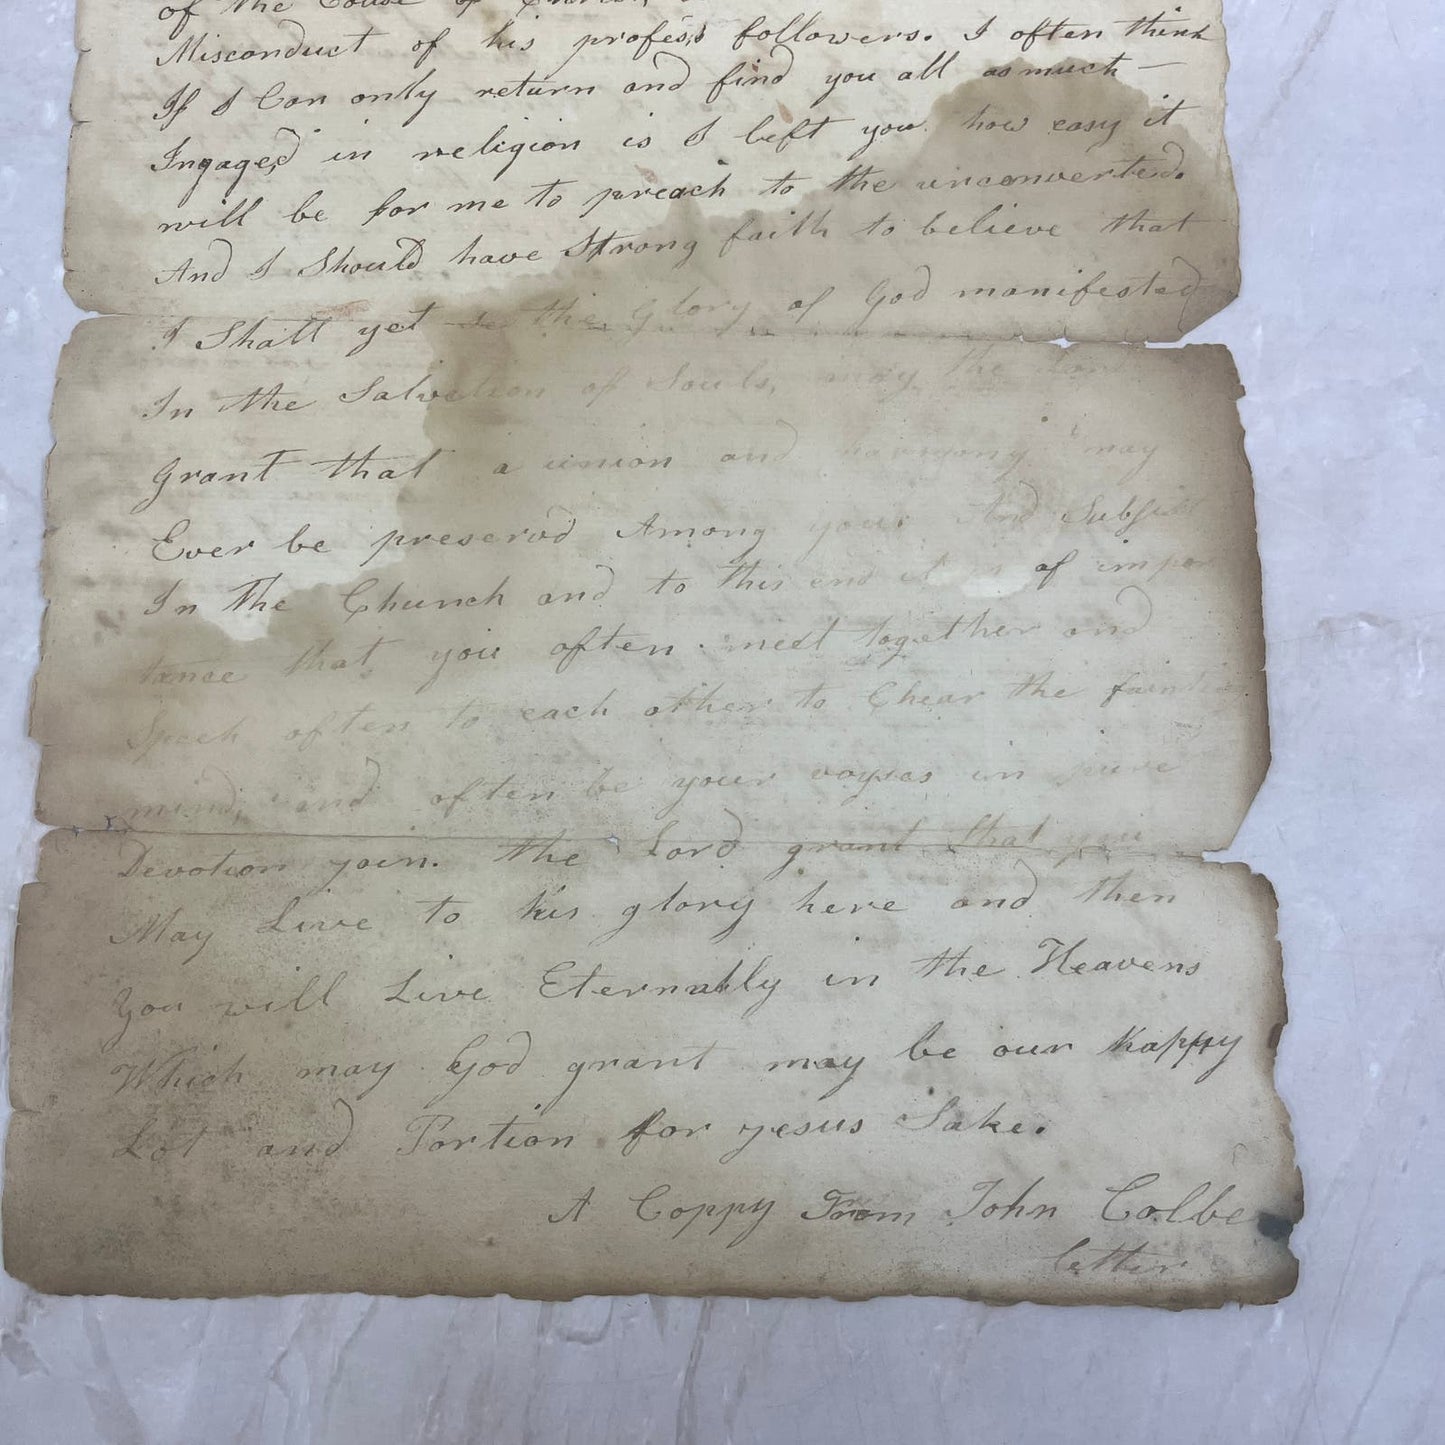 of the Couse of Christ,
Misconduct of his profess followers. I often think
If I Can only return and find you all as much —
Ingaged in religion is I left you how easy it
will be for me to preach to the unconverted.
And I Should have Strong faith to believe that
I Shall yet se the Glory of God manifested
In the Salvation of Souls, may the Lord
Grant that a union and harmony may
Ever be preservd Among your And Subsist
In The Church and to this end it is of impor
tance that you often meet together and
Speek often to each other to Chear the fainting
mind, and often be your voyses in pure
Devotion join. the Lord grant that you
May Live to his glory here and then
You will Live Eternally in the Heavens
Which may God grant may be our happy
Lot and Portion for jesus Sake.
A Coppy From John Colbe
letter